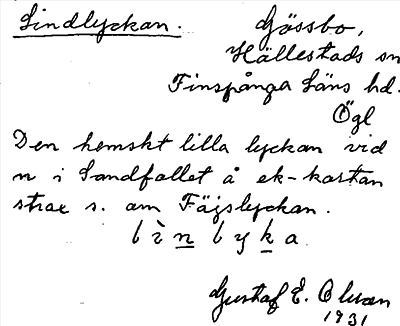 Lindlyckan.
Gössbo,
Hällestads sn
Finspånga Läns hd.
Ögl
Den hemskt lilla lyckan vid
n i Sandfallet å ek-kartan
strax s. om Fäjslyckan.
l ì n l y k a
Gustaf E. Olsson
1931